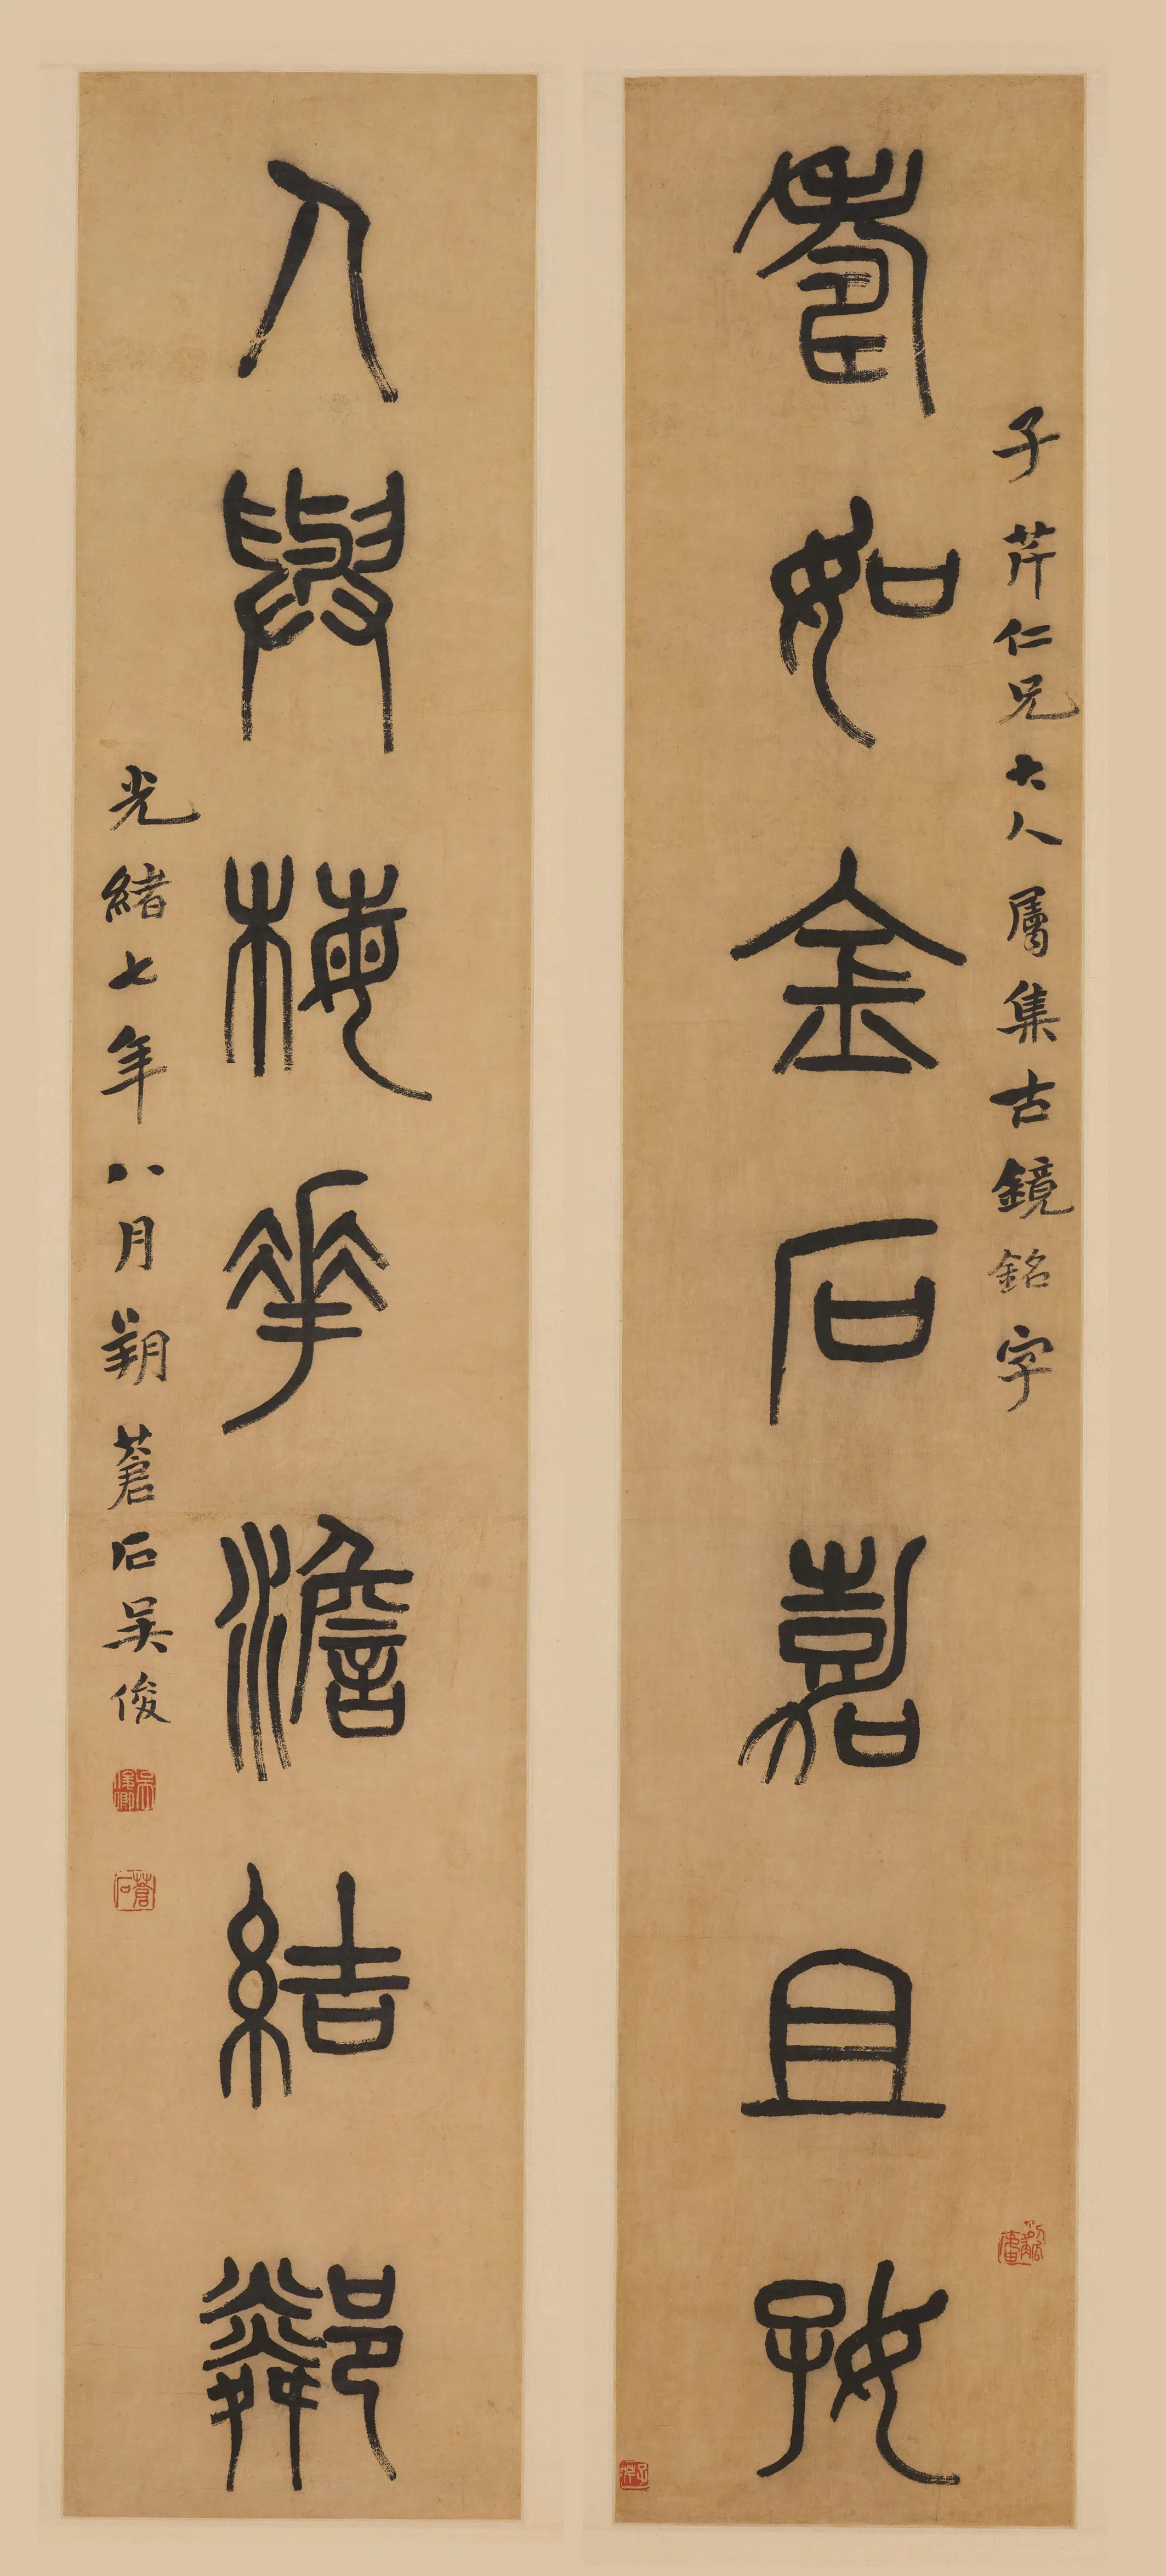 壽如金石嘉且好
子芹仁兄大人屬集古鏡銘字
人與梅花澹結鄰
光緒七年八月朔蒼石吳俊
蒼石